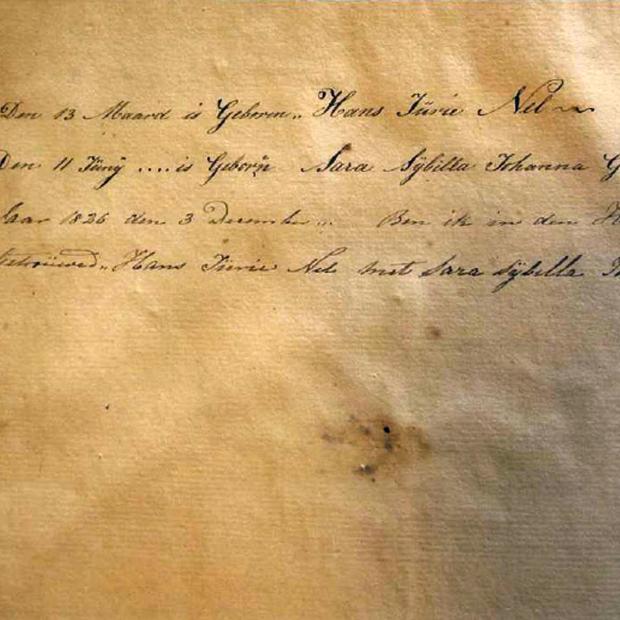 Den 13 Maard is Geboren.. Hans Jürie Nel
Den 11 Jünÿ .... is Gebor'n Sara Sÿbilla Johanna G
Jaar 1826 den 3 December ... Ben ik in den H
Getroüwed.. Hans Jürie Nel met Sara Sÿbella